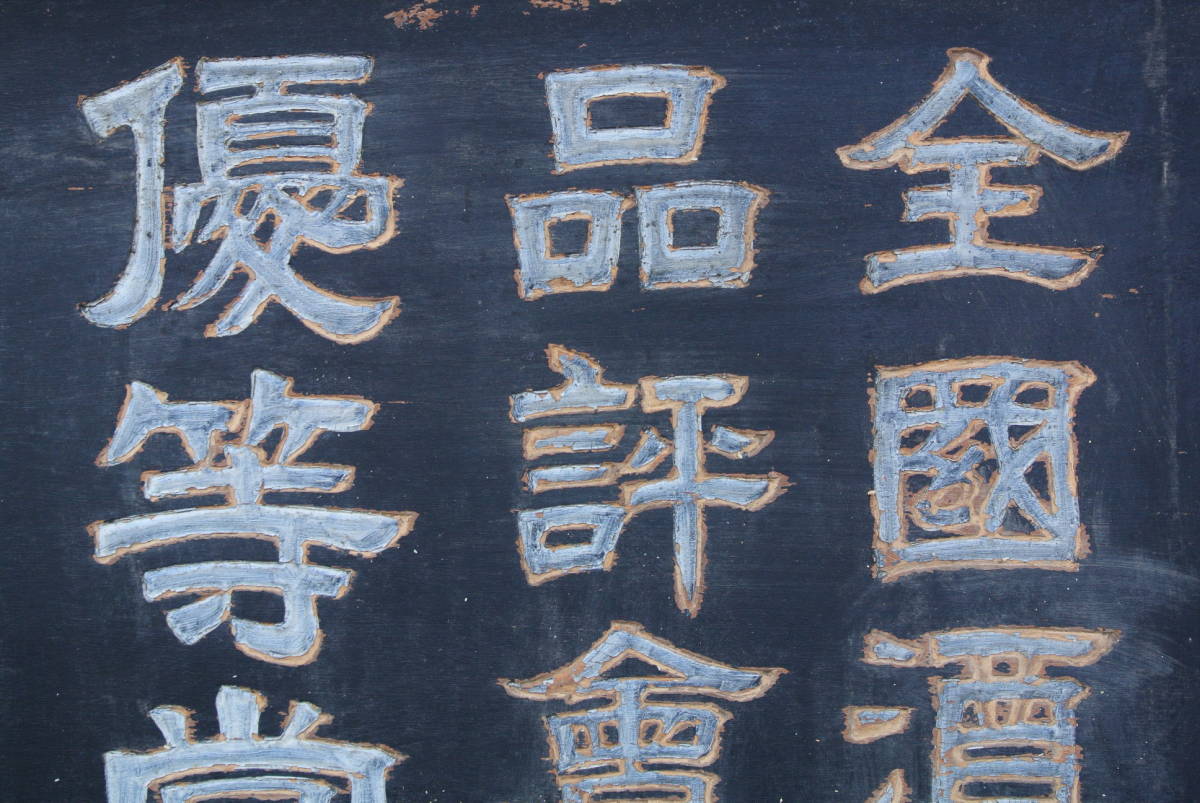 全國
品評會
優等